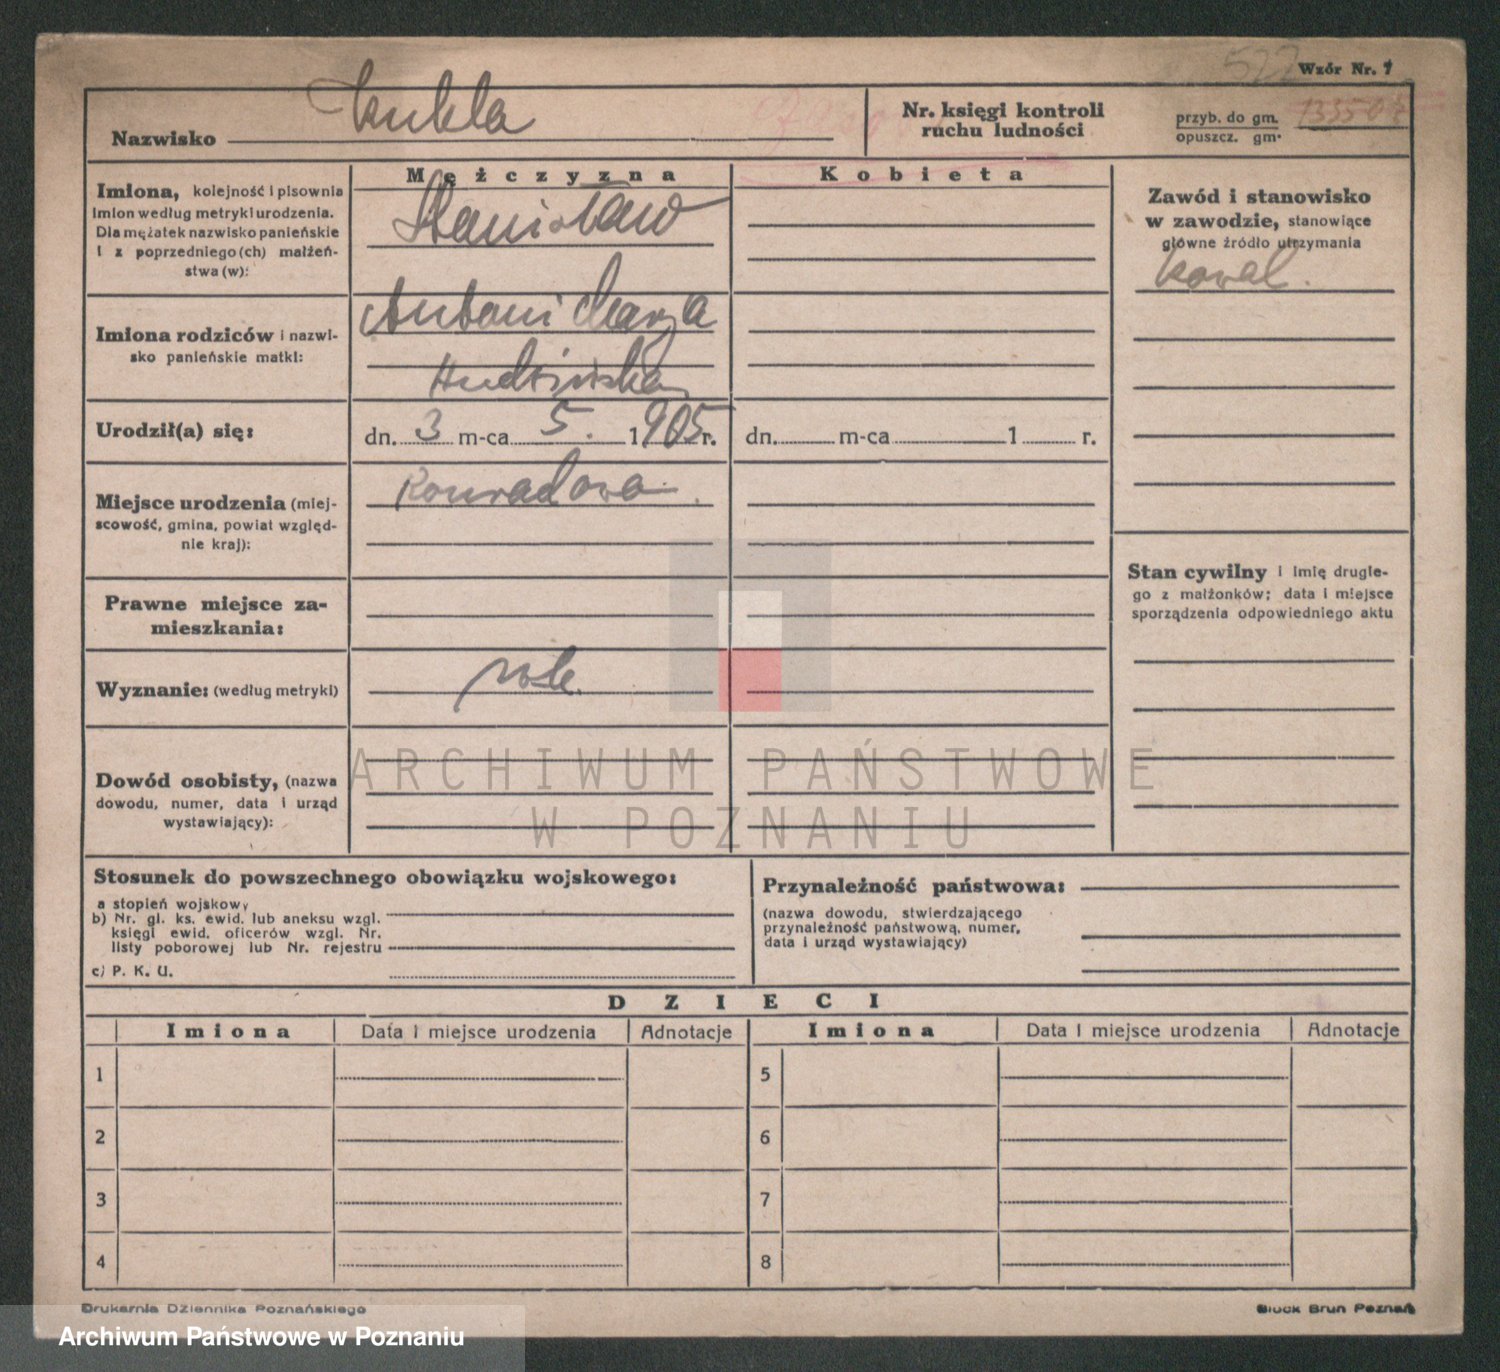 Wzór Nr. 7
522
Nazwisko Kukla
Nr. księgi kontroli
ruchu ludności
przyb. do gm. 13350
opuszcz. gm.
Imiona, kolejność i pisownia
imion według metryki urodzenia.
Dla mężatek nazwisko panieńskie
i z poprzedniego(ch) małżeń-
stwa(w):
Mężczyzna
Kobieta
Stanisław
Zawód i stanowisko
w zawodzie, stanowiące
główne źródło utrzymania
kowal.
Imiona rodziców i nazwi-
sko panieńskie matki:
Antoni Marja
Urodził(a) się:
dn. 3 m-ca 5. 1905 r.
dn. m-ca 1 r.
Miejsce urodzenia (miej-
scowość, gmina, powiat względ-
nie kraj):
Konradowa.
Stan cywilny i imię drugie-
go z małżonków; data i miejsce
sporządzenia odpowiedniego aktu
Prawne miejsce za-
mieszkania:
Wyznanie: (według metryki)
Dowód osobisty, (nazwa
dowodu, numer, data i urząd
wystawiający):
ARCHIWUM PAŃSTWOWE
W POZNANIU
Stosunek do powszechnego obowiązku wojskowego:
a stopień wojskowy
b) Nr. gl. ks. ewid. lub aneksu wzgl.
księgi ewid. oficerów wzgl. Nr.
listy poborowej lub Nr. rejestru
c) P. K. U.
Przynależność państwowa:
(nazwa dowodu, stwierdzającego
przynależność państwową, numer,
data i urząd wystawiający)
DZIECI
Imiona Data i miejsce urodzenia Adnotacje Imiona Data i miejsce urodzenia Adnotacje
1 5
2 6
3 7
4 8
Drukarnia Dziennika Poznańskiego
Block Brun Poznań
Archiwum Państwowe w Poznaniu